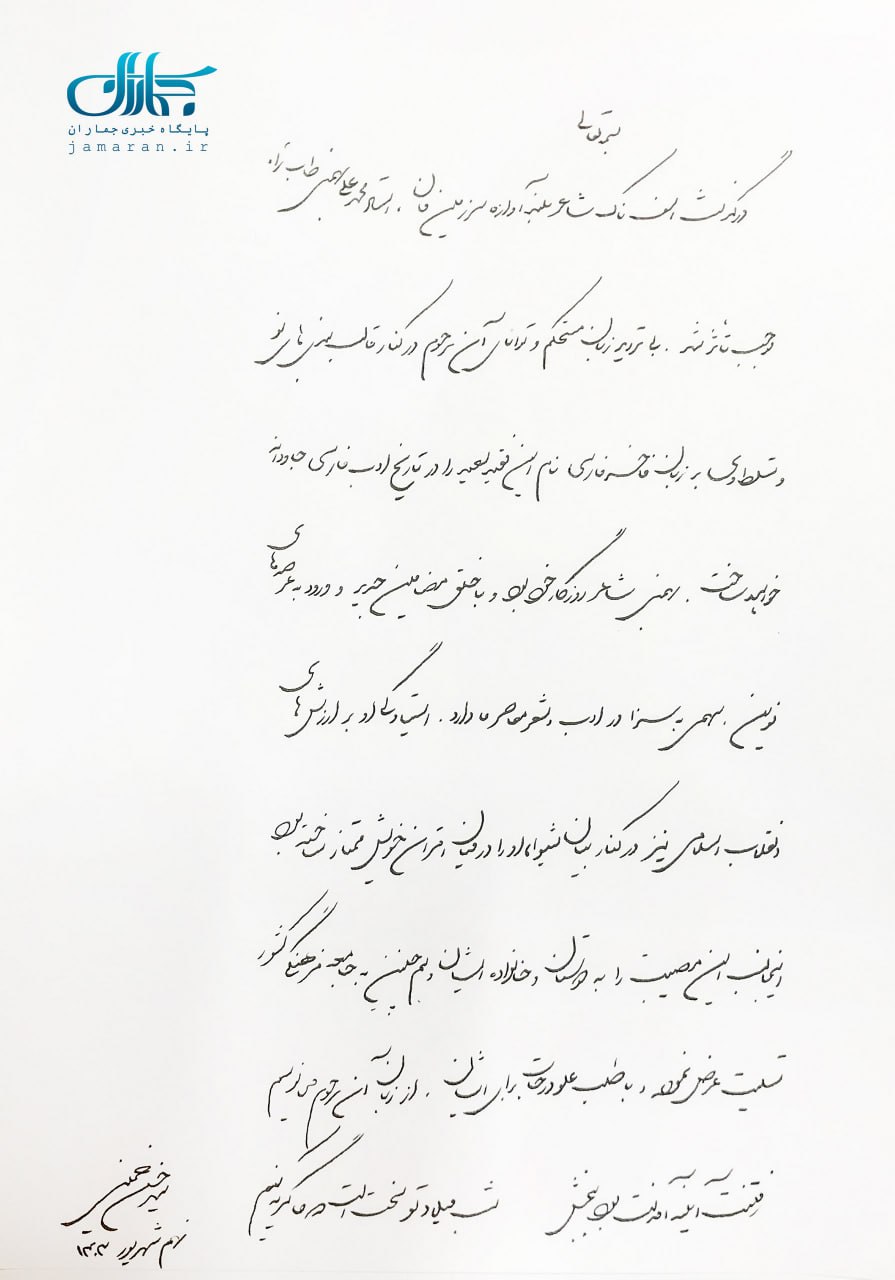 جماران
پایگاه خبری جماران
jamaran.ir
بسمه تعالی
درگذشت اسف ناک شاعر بلند آوازه سرزمین مان، استاد محمد علی بهمنی طاب ثراه
موجب تأثر شد. بی تردید زبان مستحکم و توانای آن مرحوم در کنار قالب بندی های نو
و تسلط وی بر زبان فاخر فارسی نام این فقید سعید را در تاریخ ادب فارسی جاودانه
خواهد ساخت. بهمنی شاعر روزگار خود بود و با خلق مضامین جدید و ورود به عرصه های
نوین، سهمی به سزا در ادب و شعر معاصر ما دارد. ایستادگی او بر ارزش های
انقلاب اسلامی نیز در کنار بیان شیوا، او را در میان اقران خویش ممتاز ساخته بود
اینجانب این مصیبت را به دوستان و خانواده ایشان و هم چنین به جامعه فرهنگی کشور
تسلیت عرض نموده و با طلب علو درجات برای ایشان، از زبان آن مرحوم می نویسم
رفتنت آینه آمدنت بود ببخش شب میلاد تو تلخ است که ما گریه کنیم
سید حسن خمینی
نهم شهریور ۱۴۰۳